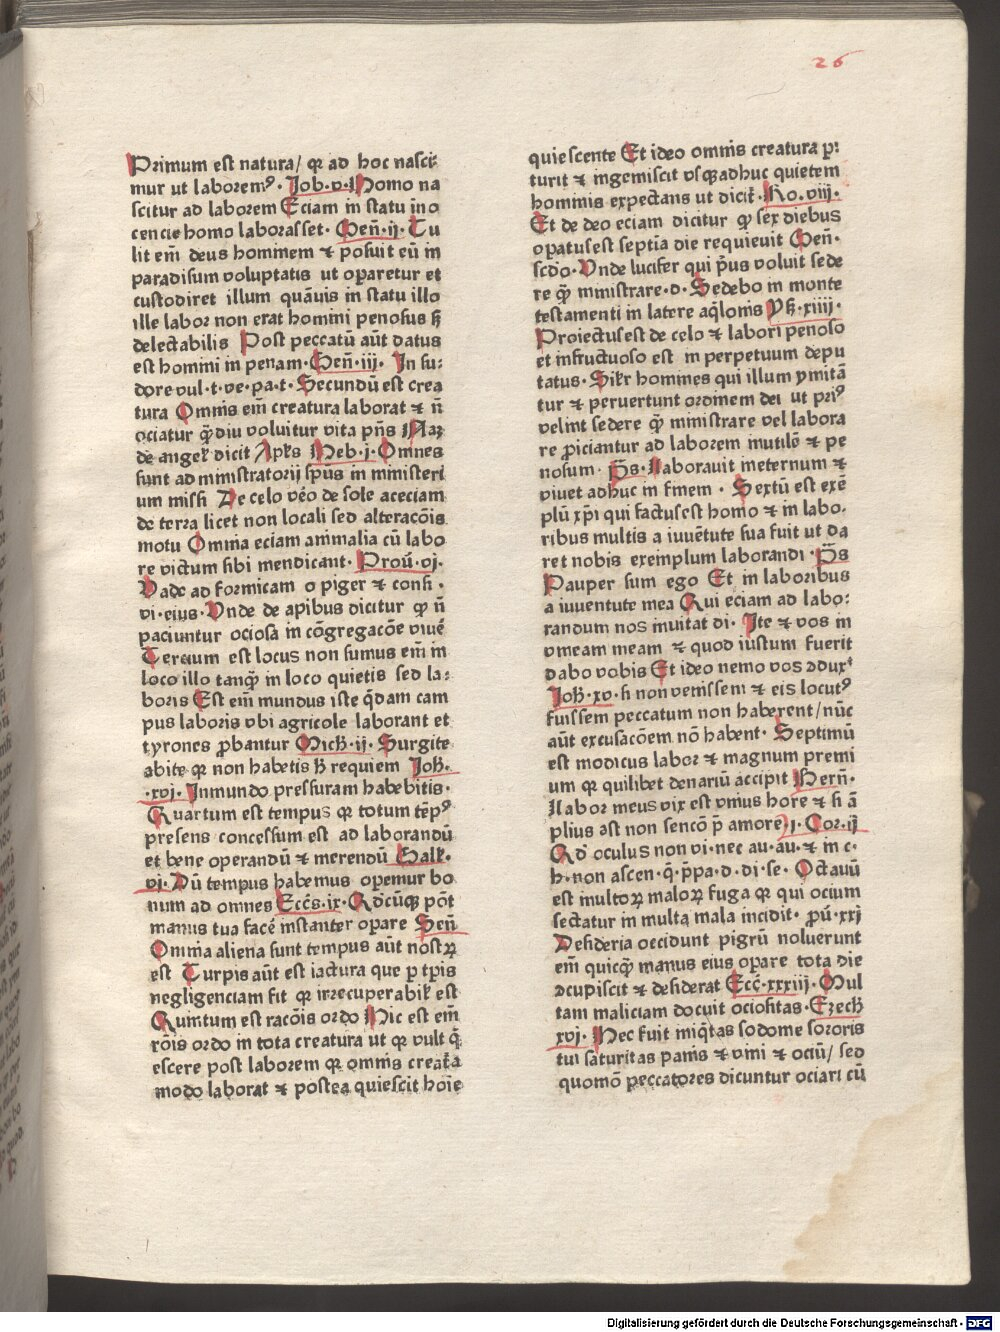 26
Primum est natura/ qꝛ ad hoc nasci⸗
mur ut laboremꝰ. Job.v. Homo na
scitur ad laborem Eciam in statu īno
cencie homo laborasset. Geñ.ij. Tu
lit em̄ deus hominem ⁊ posuit eū in
paradisum voluptatis ut oꝑaretur et
custodiret illum quāuis in statu illo
ille labor non erat homini penosus sꝫ
delectabilis Post peccatū aūt datus
est homini in penam. Geñ.iij. In su⸗
dore vul.t.ve.pa.t. Secundū est crea
tura Omnis em̄ creatura laborat ⁊ n̄
ociatur qᷓdiu voluitur vita pn̄s Naꝫ
de angel̕ dicit Apl̕s Heb.j. Omnes
sunt administratorij sp̄us in ministeri
um missi De celo vēo de sole ac eciam
de terra licet non locali sed alteracōis
motu Omnia eciam animalia cū labo
re victum sibi mendicant. Prou̅.vj.
Vade ad formicam o piger ⁊ consi .
vi.eius. Vnde de apibus dicitur ꝙ n̄
paciuntur ociosa in cōgregacōe viuē
Tercium est locus non sumus em̄ in
loco illo tanqᷓ in loco quietis sed la⸗
boris Est em̄ mundus iste q̇dam cam
pus laboris vbi agricole laborant et
tyrones ꝓbantur Mich.ij. Surgite
abite qꝛ non habetis h̕ requiem Joh̕.
.xvj. In mundo pressuram habebitis.
Quartum est tempus qꝛ totum tēpꝰ
presens concessum est ad laborandū
et bene operandū ⁊ merendū Galk̕.
vj. Dū tempus habemus operemur bo
num ad omnes Ecc̄s.ix. Qd̕cūqꝫ pōt
manus tua facē instanter oꝑare Señ
Omnia aliena sunt tempus aūt nostꝝ
est Turpis aūt est iactura que ꝑ tp̄is
negligenciam fit qꝛ irrecuperabil̕ est
Quintum est racōis ordo Hic est em̄
rōis ordo in tota creatura ut qꝛ vult q̇
escere post laborem qꝛ omnis creat̕a
modo laborat ⁊ postea quiescit hoīe
quiescente Et ideo omnis creatura ꝑ⸗
turit ⁊ ingemiscit vsqꝫ adhuc quietem
hominis expectans ut dicit̕. Ro.viij.
Et de deo eciam dicitur ꝙ sex diebus
oꝑatus est septīa die requieuit Geñ.
scd̕o. Vnde lucifer qui p̄us voluit sede
re qᷓ ministrare.d. Sedebo in monte
testamenti in latere aq̇lonis Ysꝫ.xiiij.
Proiectus est de celo ⁊ labori penoso
et infructuoso est in perpetuum depu
tatus. Sil̕r homines qui illum ymitā
tur ⁊ peruertunt ordinem dei ut priꝰ
velint sedere qᷓ ministrare vel labora
re ꝓiciantur ad laborem inutilē ⁊ pe
nosum. P̄s. Laborauit in eternum ⁊
viuet adhuc in finem . Sextū est exē
plū xp̄i qui factus est homo ⁊ in labo.
ribus multis a iuuētute sua fuit ut da
ret nobis exemplum laborandi. P̄s
Pauper sum ego Et in laboribus
a iuuentute mea Qui eciam ad labo⸗
randum nos inuitat di. Ite ⁊ vos in
vineam meam ⁊ quod iustum fuerit
dabo vobis Et ideo nemo vos ꝯduxᵗ
Joh̕.xv. si non venissem ⁊ eis locutꝰ
fuissem peccatum non haberent/ nūc
aūt excusacōem nō habent. Septimū
est modicus labor ⁊ magnum premi
um qꝛ quilibet denariū accipit Berñ.
Labor meus vix est vnius hore ⁊ si ā
plius est non sencō p̄ amore j.Cor.ij
Qd̕ oculus non vi.nec au.au.⁊ in c.
h.non ascen.q̄.p̄pa.d.di.se. Octauū
est multoꝝ maloꝝ fuga qꝛ qui ocium
sectatur in multa mala incidit. ꝓū.xxj
Desideria occidunt pigrū noluerunt
em̄ quicqᷓ manus eius oꝑare tota die
ꝯcupiscit ⁊ desiderat Ecc̄.xxxiij. Mul
tam maliciam docuit ociositas. Ezech̕
xvj. Hec fuit iniq̇tas sodome sororis
tui saturitas panis ⁊ vini ⁊ ociū/ sed
quomō peccatores dicuntur ociari cū
Digitalisierung gefördert durch die Deutsche Forschungsgemeinschaft - DFG